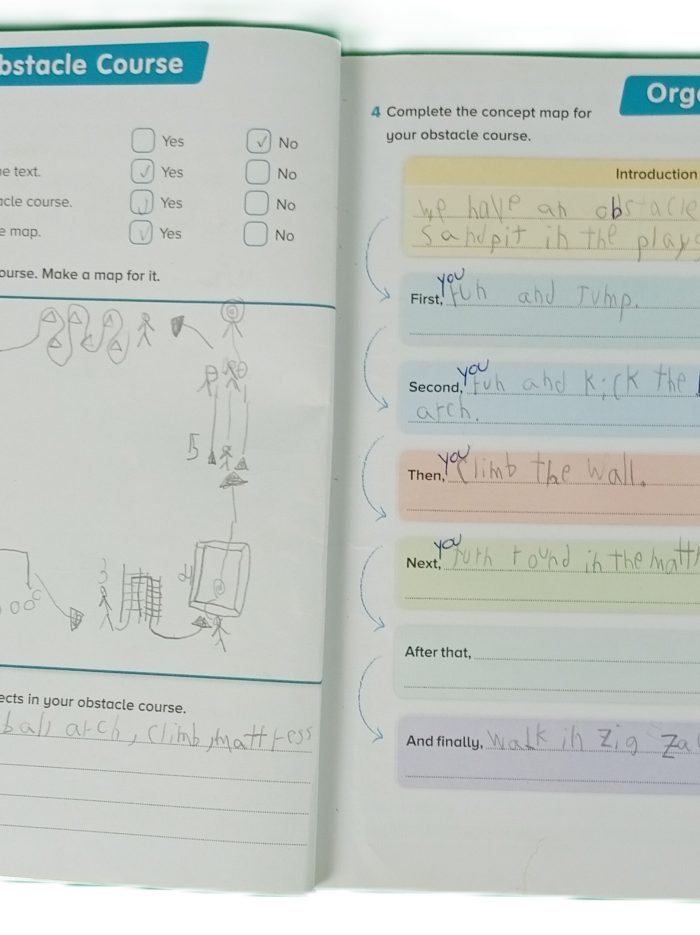 bstacle Course
Yes
No
e text.
Yes
No
acle course.
Yes
No
e map.
Yes
No
ourse. Make a map for it.
5
3
4
ects in your obstacle course.
ball, arch, climb, mattress
Orga
4 Complete the concept map for
your obstacle course.
Introduction
we have an obstacle
sandpit in the plays
you
First, run and jump.
you
Second, run and kick the
arch.
you
Then, climb the wall.
you
Next, turn round in the matt
After that,
And finally, walk in zig za